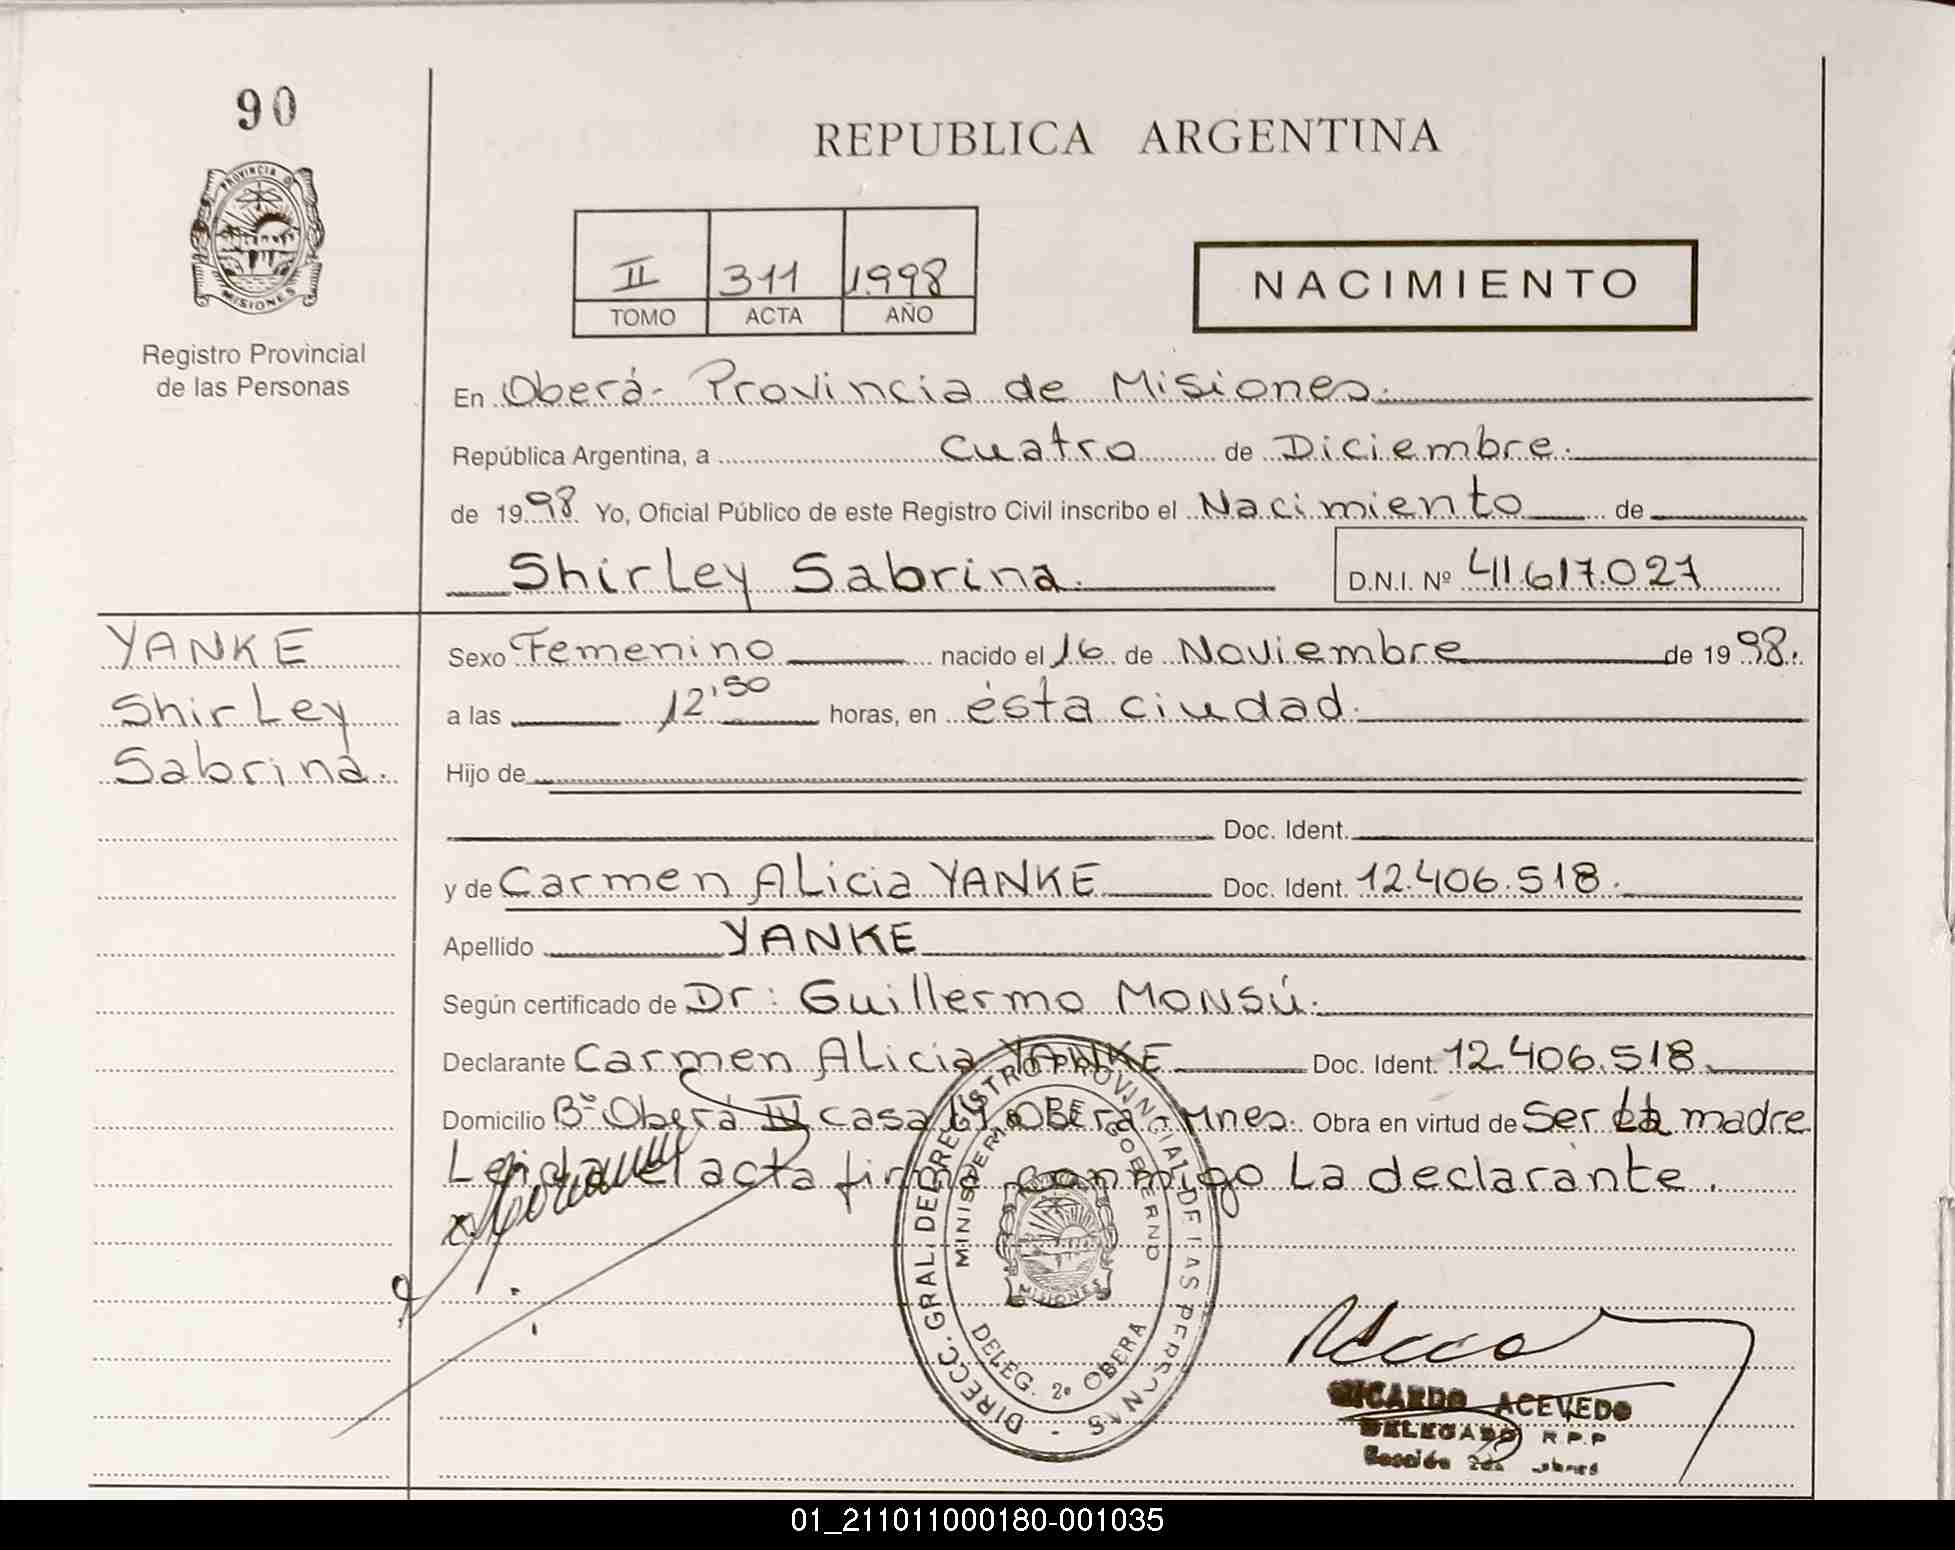 90
PROVINCIA D
MISIONES
Registro Provincial
de las Personas
REPUBLICA ARGENTINA
II 311 1998
TOMO ACTA AÑO
NACIMIENTO
En Oberá- Provincia de Misiones.
República Argentina, a Cuatro de Diciembre.
de 1998. Yo, Oficial Público de este Registro Civil inscribo el Nacimiento de
Shirley Sabrina.
D.N.I. Nº 41.617.027
YANKE
Shirley
Sabrina.
Sexo Femenino nacido el 16 de Noviembre de 1998.
a las 12'50 horas, en ésta ciudad.
Hijo de
Doc. Ident.
y de Carmen Alicia YANKE Doc. Ident. 12.406.518.
Apellido YANKE
Según certificado de Dr: Guillermo MONSÚ.
Declarante Carmen Alicia YANKE Doc. Ident. 12.406.518.
Domicilio Bº Oberá IV casa OBERA - Mnes. Obra en virtud de Ser la madre
Leida el acta firma conmigo la declarante.
DIRECC. GRAL. DEL REGISTRO PROVINCIAL DE LAS PERSONAS
MINISTERIO DE GOBIERNO
MISIONES
DELEG. 2º OBERA
RICARDO ACEVEDO
DELEGADO R.P.P
Sección 2da
01_211011000180-001035